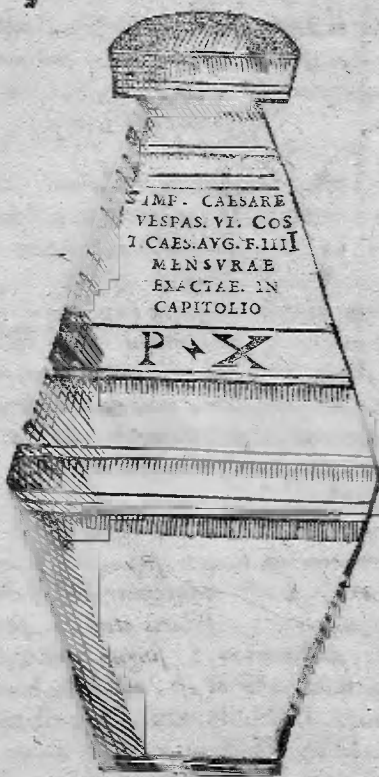 IMP. CAESARE
VESPAS. VI. COS
T. CAES. AVG. F. IIII
MENSVRAE
EXACTAE. IN
CAPITOLIO
P X